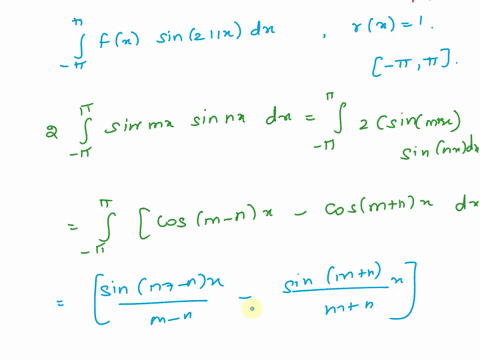 ∫_{-π}^{π} f(x) sin(211x) dx , r(x)=1.
[-π, π].
2 ∫_{-π}^{π} sin mx sin nx dx = ∫_{-π}^{π} 2 (sin(mx)
sin(nx)dx
= ∫_{-π}^{π} [cos(m-n)x - cos(m+n)x dx
= [sin(m-n)x / m-n - sin(m+n)x / m+n]